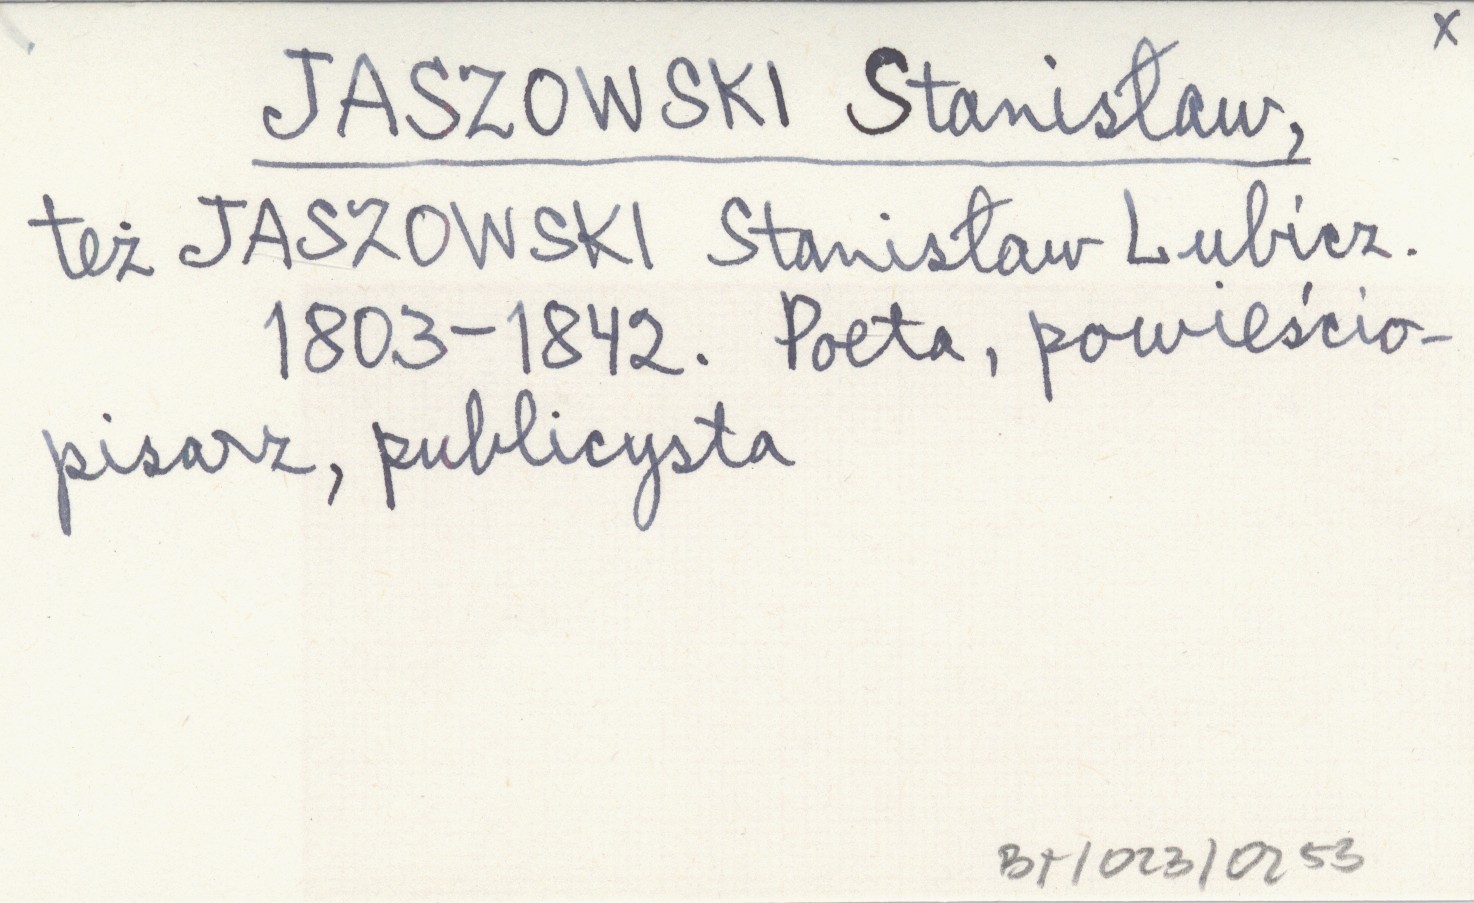 x
JASZOWSKI Stanisław,
też JASZOWSKI Stanisław Lubicz.
1803-1842. Poeta, powieścio-
pisarz, publicysta
BT/023/0253